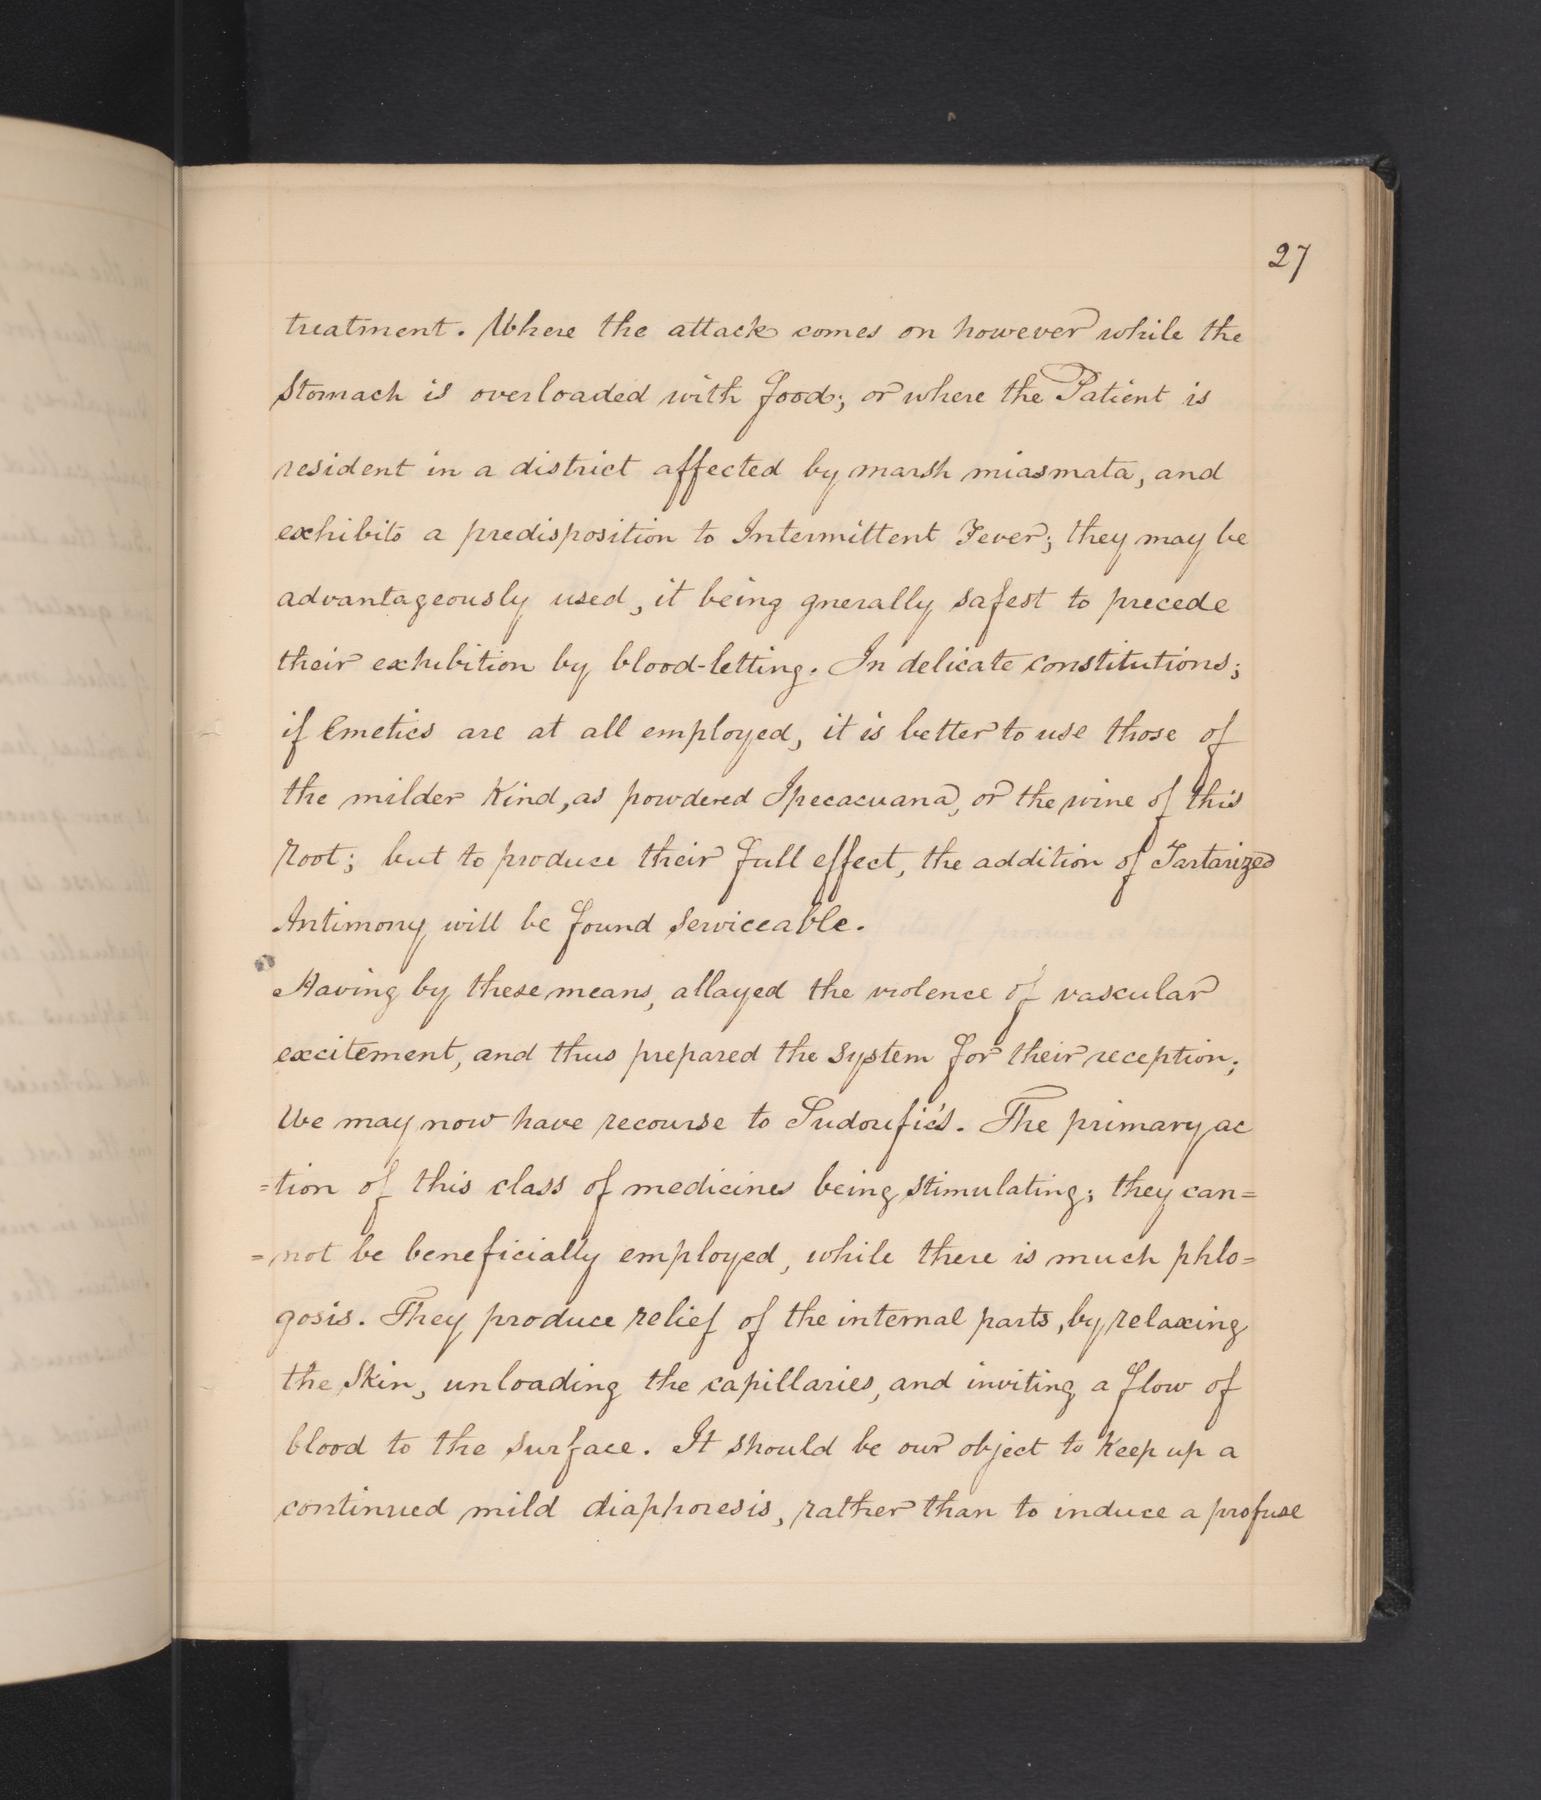 27
treatment. Where the attack comes on however while the
Stomach is overloaded with food; or where the Patient is
resident in a district affected by marsh miasmata, and
exhibits a predisposition to Intermittent Fever; they may be
advantageously used, it being gnerally safest to precede
their exhibition by blood-letting. In delicate constitutions;
if Emetics are at all employed, it is better to use those of
the milder Kind, as powdered Ipecacuana, or the wine of this
Root; but to produce their full effect, the addition of Tartarized
Antimony will be found serviceable.
Having by these means, allayed the violence of vascular
excitement, and thus prepared the system for their reception;
We may now have recourse to Sudorific's. The primary ac
=tion of this class of medicines being stimulating; they can=
=not be beneficially employed, while there is much phlo=
gosis. They produce relief of the internal parts, by relaxing
the Skin, unloading the capillaries, and inviting a flow of
blood to the surface. It should be our object to Keep up a
continued mild diaphoresis, rather than to induce a profuse